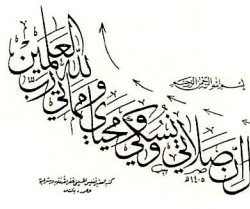 بسم الله الرحمن الرحيم
ان صلاتي ونسكي ومحياي ومماتي لله رب العالمين
١٤٠٥هـ